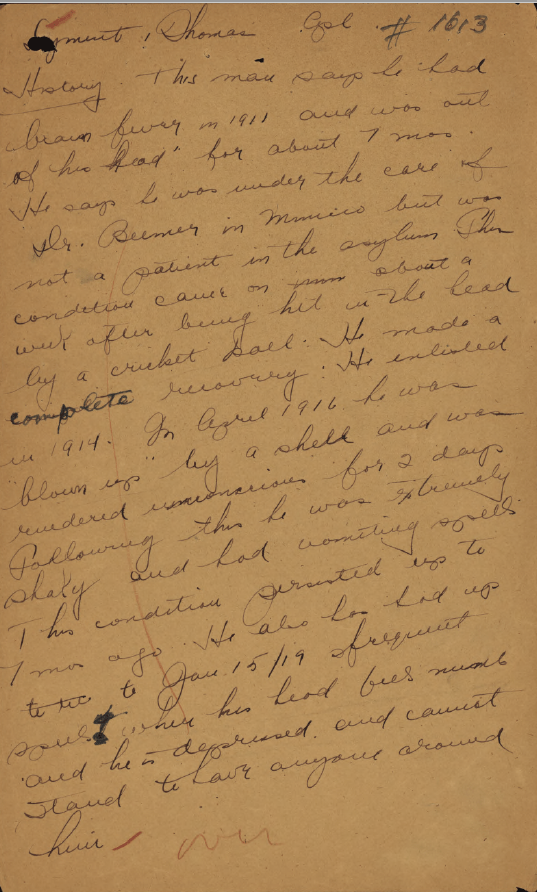 Thomas Cpl # 1613
History. This man says he had
brain fever in 1911 and was out
of his head" for about 7 mos.
He says he was under the care of
Dr. Beemer in Mimico but was
not a patient in the asylum This
condition came on about a
week after being hit in the head
by a cricket ball. He made a
complete recovery. He enlisted
in 1914. In April 1916 he was
"blown up" by a shell and was
rendered unconscious for 2 days
Following this he was extremely
shaky and had vomiting spells
This condition persisted up to
7 mos ago. He also has had up
to to Jan. 15/19 frequent
spells when his head feels numb
and he is depressed and cannot
stand to have anyone around
him
over